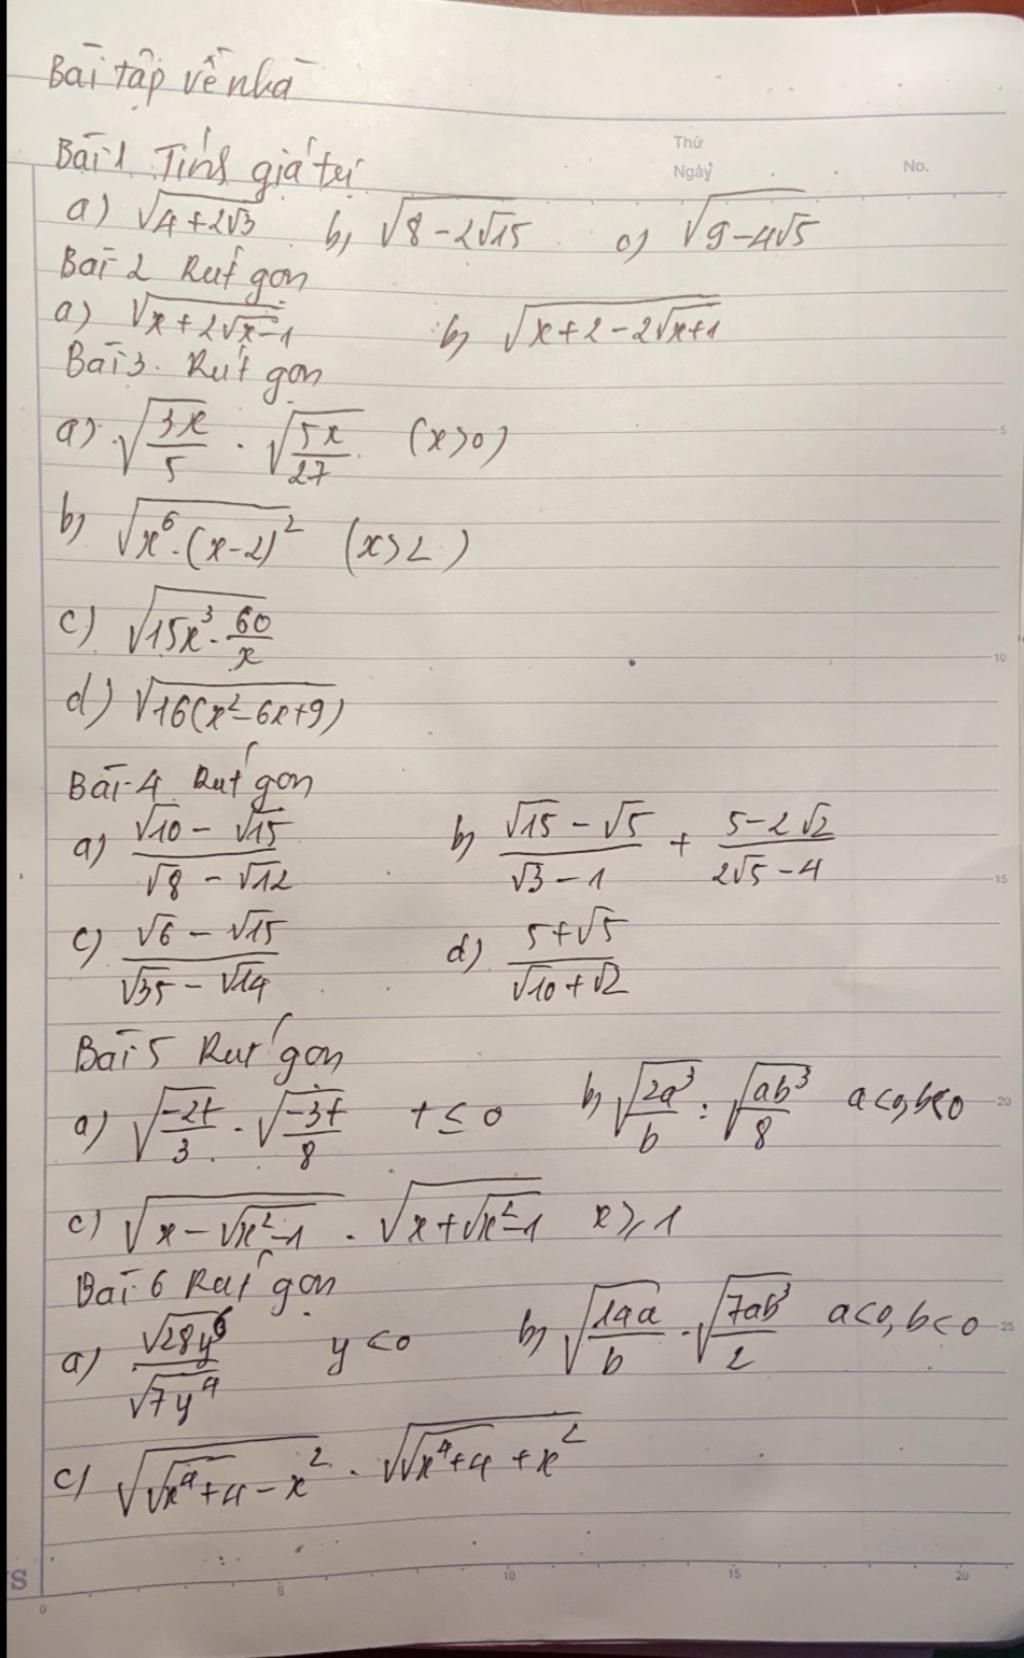 Bài tập về nhà
Thứ
Ngày
No.
Bài 1. Tính giá trị
a) √(4+2√3) b) √(8-2√15) c) √(9-4√5)
Bài 2 Rút gọn
a) √(x+2√(x-1)) b) √(x+2-2√(x+1))
Bài 3. Rút gọn
a) √(3x/5) . √(5x/27) (x>0)
5
b) √(x⁶.(x-2)²) (x>2)
c) √(15x³.60/x)
10
d) √(16(x²-6x+9))
Bài 4. Rút gọn
a) (√10-√15)/(√8-√12) b) (√15-√5)/(√3-1) + (5-2√2)/(2√5-4)
15
c) (√6-√15)/(√35-√14) d) (5+√5)/(√10+√2)
Bài 5 Rút gọn
a) √(-2t/3) . √(-3t/8) t≤0 b) √(2a³/b) : √(ab³/8) a<0, b<0
20
c) √(x-√(x²-1)) . √(x+√(x²-1)) x≥1
Bài 6 Rút gọn
a) √(28y⁶)/√(7y⁴) y<0 b) √(14a/b) . √(7ab³/2) a<0, b<0
25
c) √(√(x⁴+4)-x²) . √(√(x⁴+4)+x²)
S
0 5 10 15 20